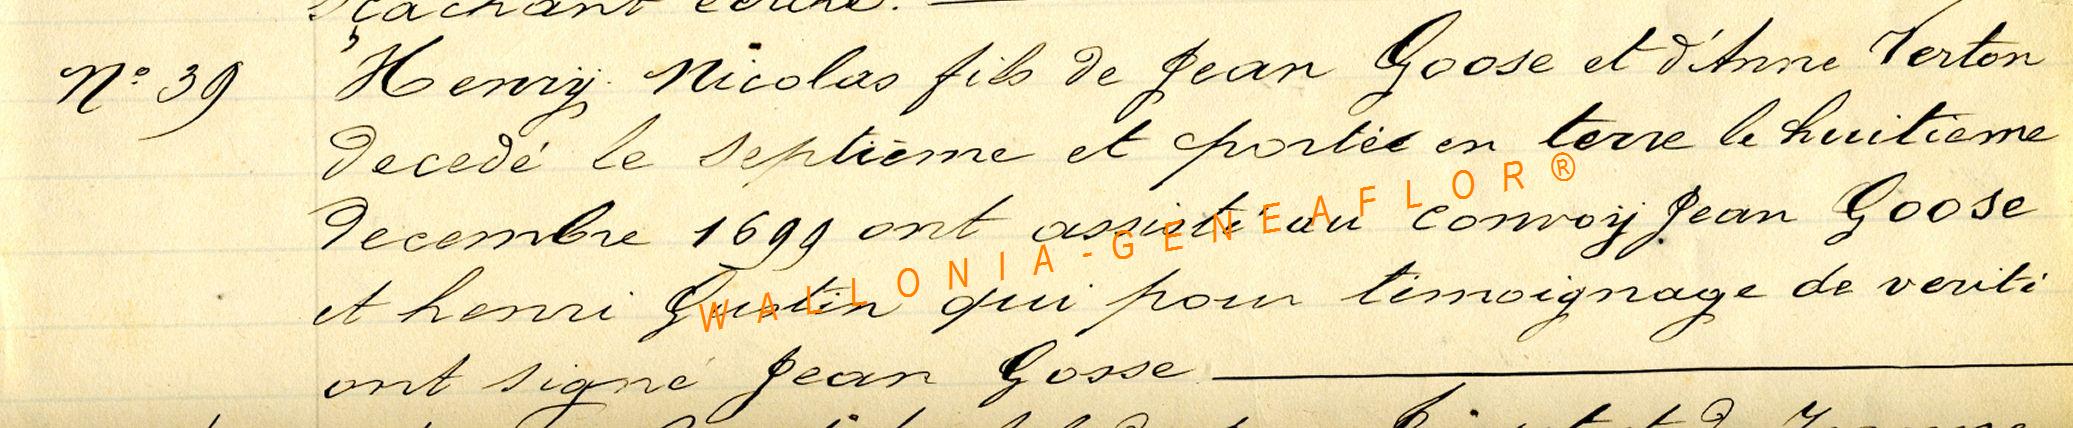 sçachant écrire. —
N° 39 Henrÿ Nicolas fils de Jean Goose et d'Anne Terton
decedé le septième et portée en terre le huitieme
Decembre 1699 ont assisté au convoÿ Jean Goose
et henri Gustin qui pour temoignage de verité
ont signé Jean Gosse —
WALLONIA-GENEAFLOR®